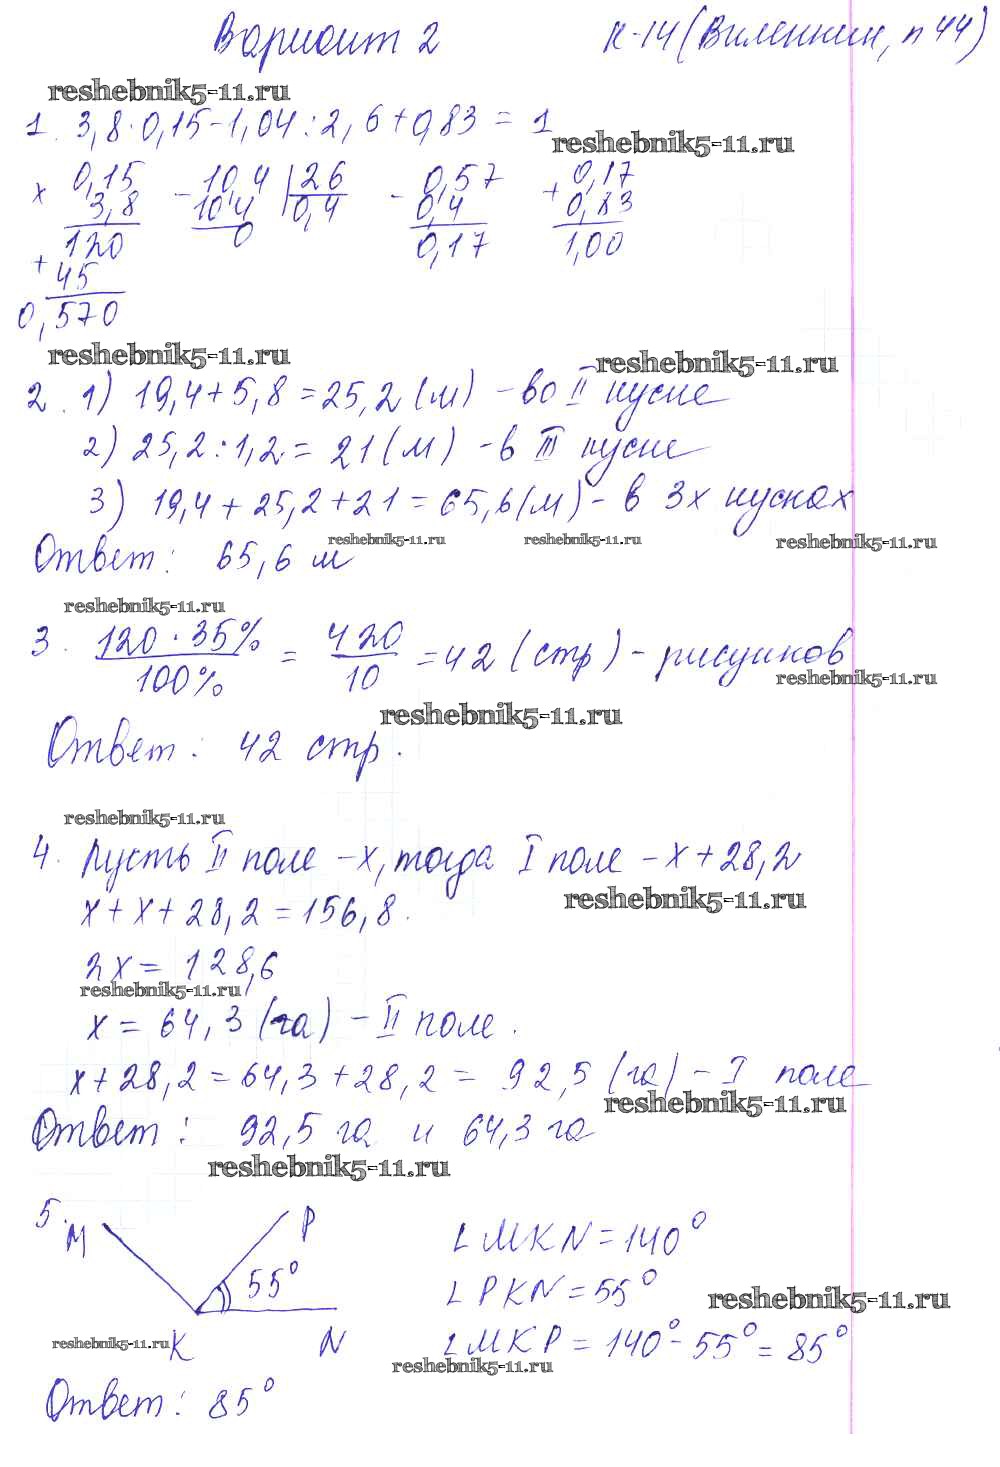 Вариант 2 К-14 (Виленкин, п 44)
reshebnik5-11.ru
1. 3,8·0,15-1,04:2,6+0,83 = 1
reshebnik5-11.ru
× 0,15 - 10,4 | 26 - 0,57 + 0,17
3,8 10,4 0,4 0,4 0,83
120 0 0,17 1,00
+ 45
0,570
reshebnik5-11.ru reshebnik5-11.ru
2. 1) 19,4+5,8=25,2(м) - во II куске
2) 25,2:1,2= 21(м) - в III куске
3) 19,4+25,2+21=65,6(м) - в 3х кусках
reshebnik5-11.ru reshebnik5-11.ru reshebnik5-11.ru
Ответ: 65,6 м
reshebnik5-11.ru
3. 120·35% / 100% = 420 / 10 = 42 (стр) - рисунков
reshebnik5-11.ru
reshebnik5-11.ru
Ответ: 42 стр.
reshebnik5-11.ru
4. Пусть II поле - х, тогда I поле - х+28,2
reshebnik5-11.ru
х+х+28,2=156,8.
2х= 128,6
reshebnik5-11.ru
х=64,3 (га) - II поле.
х+28,2=64,3+28,2= 92,5 (га) - I поле
reshebnik5-11.ru
Ответ: 92,5 га и 64,3 га
reshebnik5-11.ru
5. M P ∠MKN=140°
55° ∠PKN=55°
reshebnik5-11.ru
K N ∠MKP=140°-55°=85°
reshebnik5-11.ru reshebnik5-11.ru
Ответ: 85°